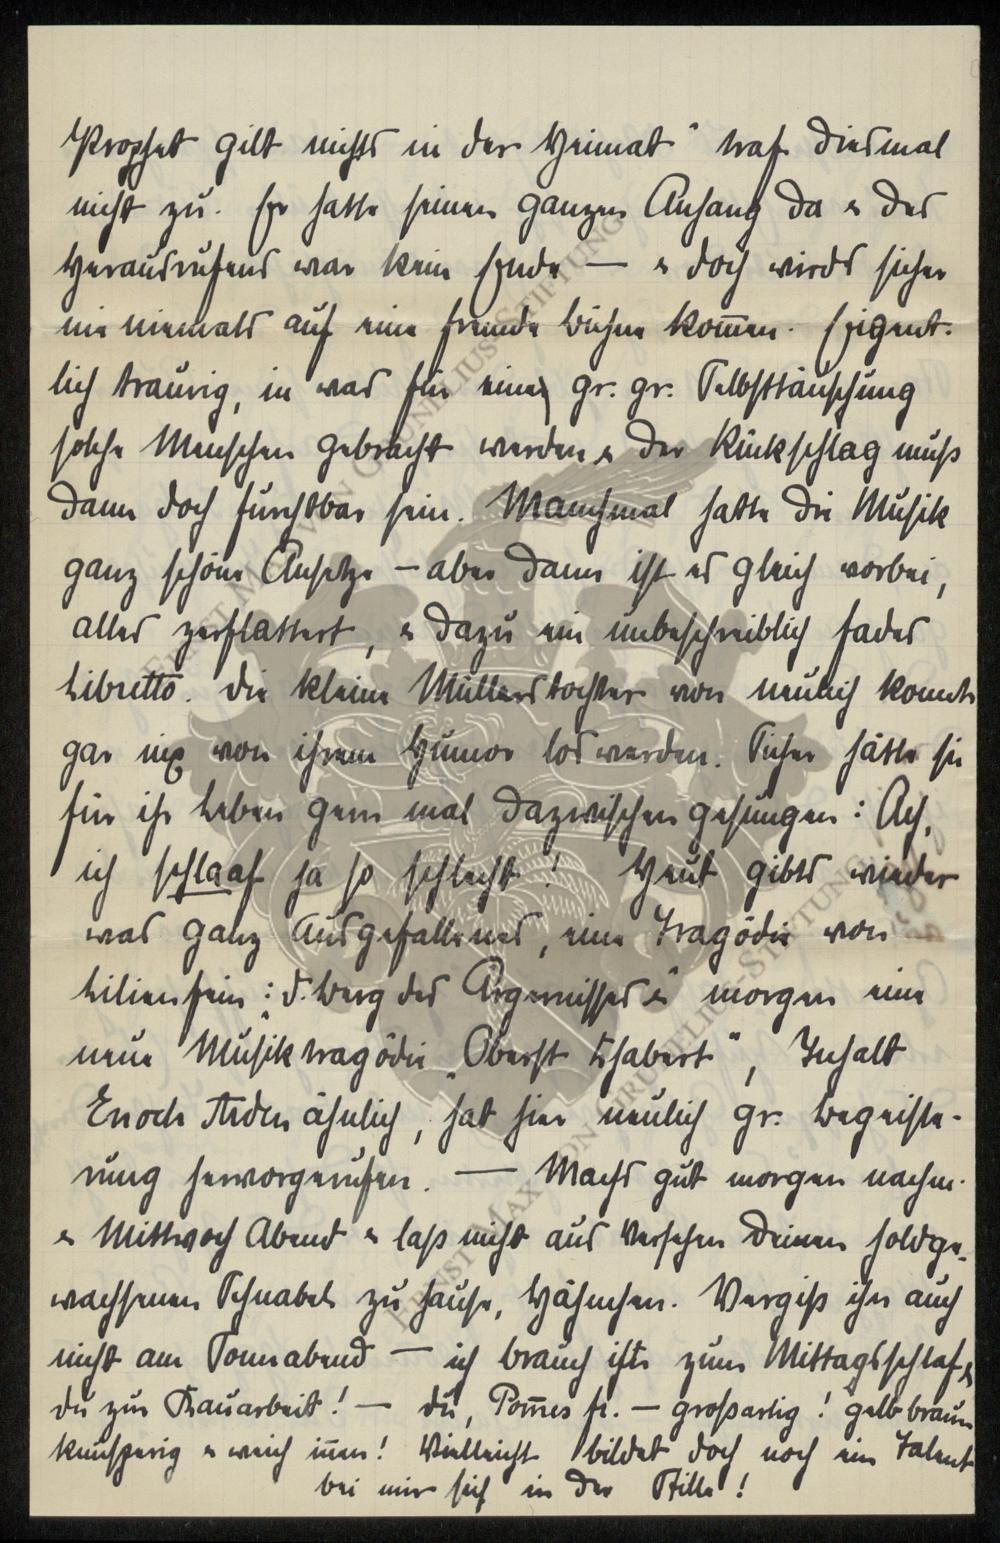 Prophet gilt nichts in der Heimat" traf diesmal
nicht zu. Er hatte seinen ganzen Anhang da & des
Herausrufens war kein Ende — & doch wirds sicher
nie niemals auf eine fremde Bühne kom̅en. Eigent-
lich traurig, in was für eine gr. gr. Selbsttäuschung
solche Menschen gebracht werden & der Rückschlag muß
dann doch furchtbar sein. Manchmal hatte die Musik
ganz schöne Ansätze – aber dann ist es gleich vorbei,
alles zerflattert, & dazu ein unbeschreiblich fades
Libretto. Die kleine Müllerstochter von neulich konnte
gar nix von ihrem Humor loswerden. Sicher hätte sie
für ihr Leben gern mal dazwischen gesungen: Ach,
ich schlaaf ja so schlecht! Heut gibts wieder
was ganz Ausgefallenes, eine Tragödie von
Lilienfein: „d. Berg des Ärgernisses" & morgen eine
neue Musiktragödie „Oberst Chabert", Inhalt
Enoch Arden ähnlich, hat hier neulich gr. Begeiste-
rung hervorgerufen. — Machs gut morgen nachm.
& Mittwoch Abend & laß nicht aus Versehen Deinen holdge-
wachsenen Schnabel zu Hause, Hähnchen. Vergiß ihn auch
nicht am Sonnabend — ich brauch ihn zum Mittagsschlaf &
du zur Kauarbeit! — du, Pom̅es fr. — großartig! gelbbraun
knusperig & weich in̅en! Vielleicht bildet doch noch ein Talent
bei mir sich in der Stille!
ERNST MAX VON GRUNELIUS-STIFTUNG
ERNST MAX VON GRUNELIUS-STIFTUNG